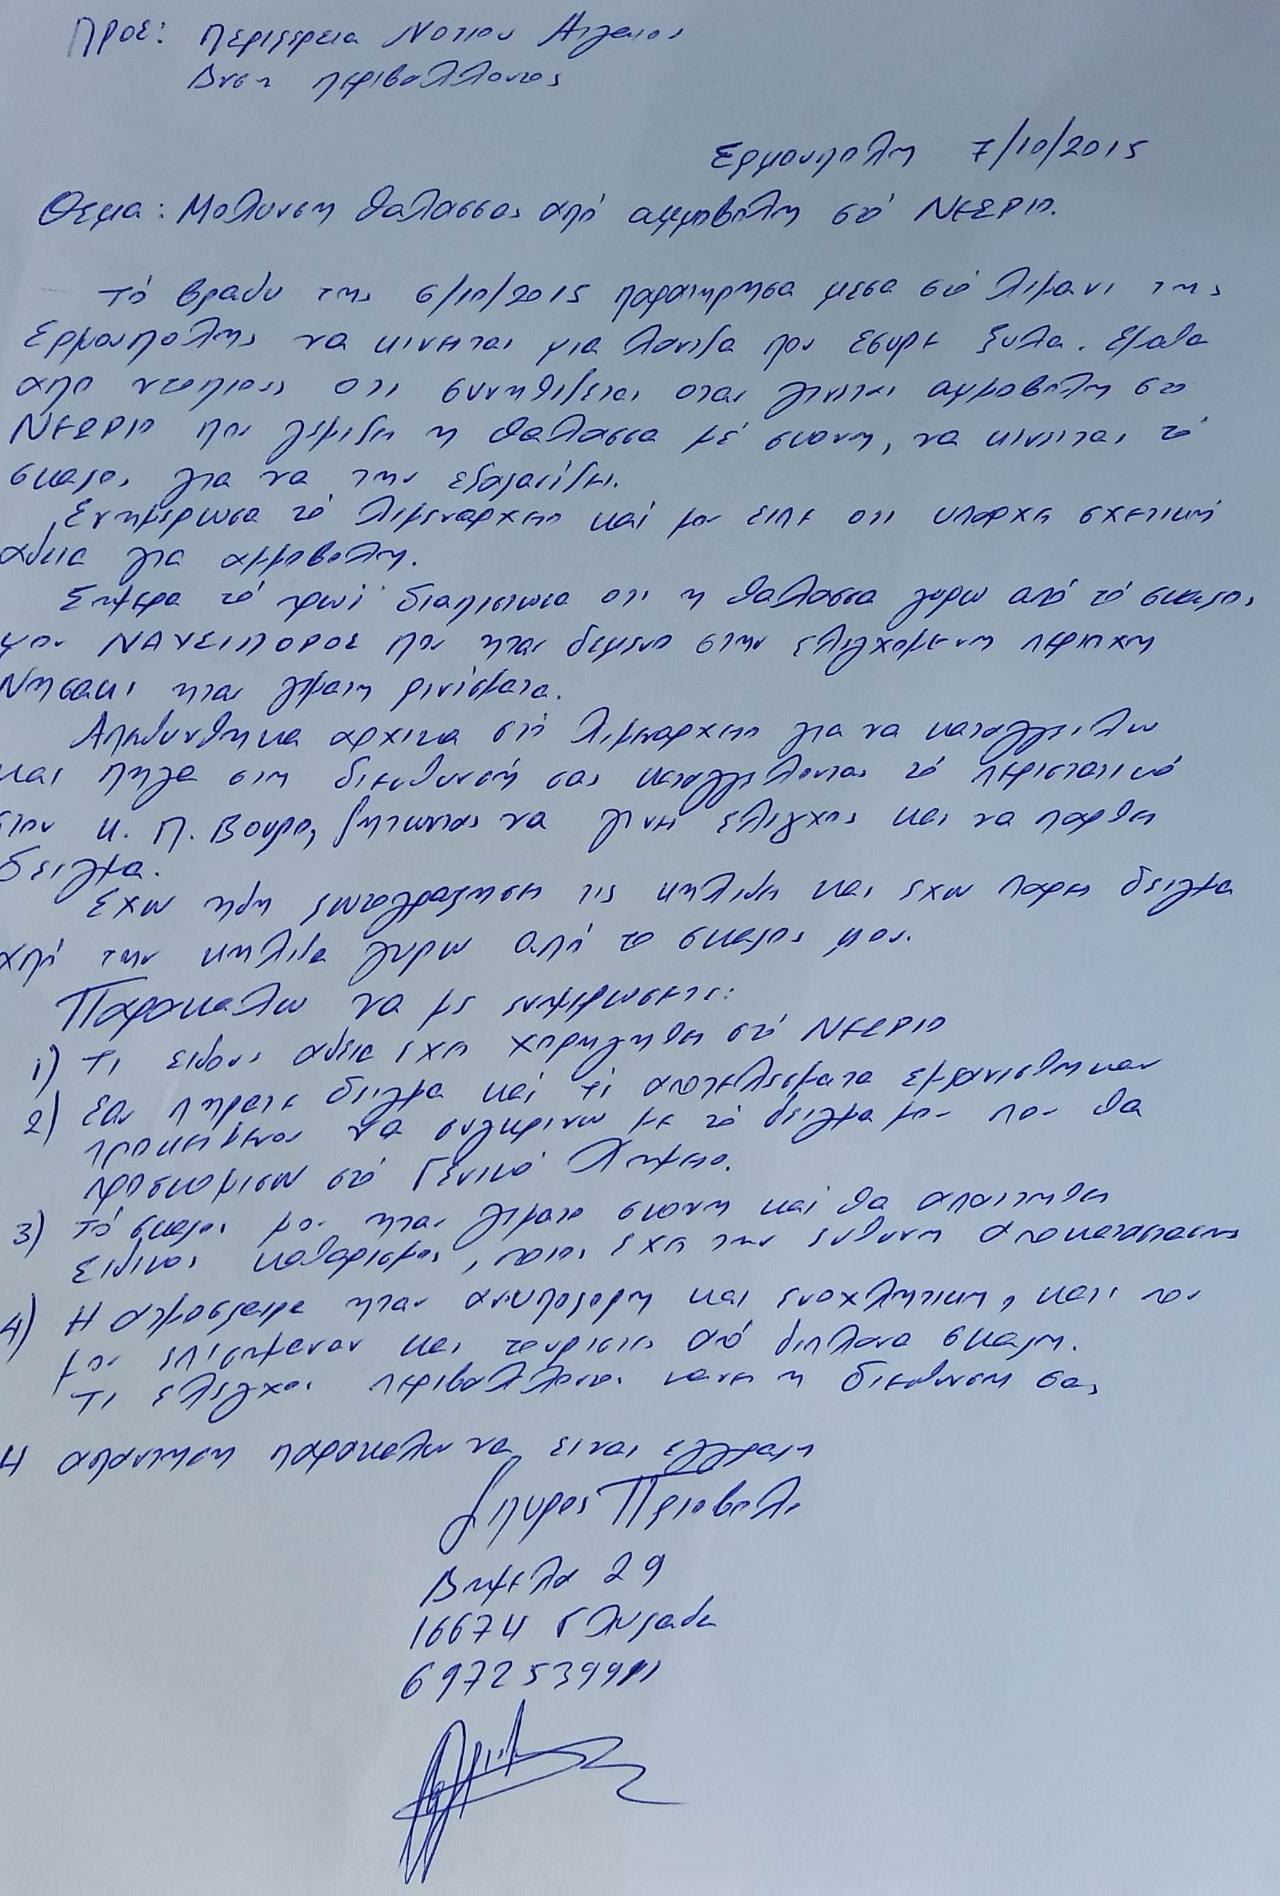 Προς: Περιφερεια Νοτιου Αιγαιου
Δνση περιβαλλοντος
Ερμουπολη 7/10/2015
Θεμα: Μολυνση θαλασσας από αμμοβολη στό ΝΕΩΡΙΟ.
Τό βραδυ της 6/10/2015 παρατηρησα μεσα στό λιμανι της
Ερμουπολης να κινειται μια λαντζα που εσυρε ξυλα. Εμαθα
απο ντοπιους οτι συνηθιζεται οταν γινεται αμμοβολη στο
ΝΕΩΡΙΟ που γεμιζει η θαλασσα μέ σκονη, να κινειται τό
σκαφος για να την εξαφανίζει.
Ενημερωσα τό Λιμεναρχειο καί μου ειπε οτι υπαρχει σχετική
αδεια για αμμοβολη.
Σημερα τό πρωί διαπιστωσα οτι η θαλασσα γυρω από τό σκαφος
μου ΝΑΥΣΙΠΟΡΟΣ που ηταν δεμενο στην ελεγχομενη περιοχη
Νησακι ηταν γεματη ρινίσματα.
Απευθυνθηκα αρχικα στό Λιμεναρχειο για να καταγγειλω
και πηγα στη διευθυνσή σας καταγγελοντας τό περιστατικό
στον κ. Π. Βουρο, ζητωντας να γινει ελεγχος και να παρθει
δειγμα.
Εχω ηδη φωτογραφησει τις κηλιδες και εχω παρει δειγμα
από την κηλιδα γυρω από το σκαφος μου.
Παρακαλω να με ενημερωσετε:
1) Τι ειδους αδεια εχει χορηγηθει στό ΝΕΩΡΙΟ
2) Εαν πηρατε δειγμα καί τί αποτελεσματα εμφανιστηκαν
προκειμενου να συγκρινω με τό δειγμα μου που θα
προσκομισω στό Γενικό Χημειο.
3) Τό σκαφος μου ηταν γεματο σκονη καί θα απαιτηθει
ειδικος καθαρισμος, ποιος εχει την ευθυνη αποκαταστασης
4) Η ατμοσφαιρα ηταν ανυποφορη και ενοχλητικη, κατι που
μου επισημαναν και τουριστες από διπλανα σκαφη.
Τι ελεγχο περιβαλλοντος κανει η διευθυνση σας
Η απαντηση παρακαλω να ειναι εγγραφη
Σπυρος
29
16674 Γλυφαδα